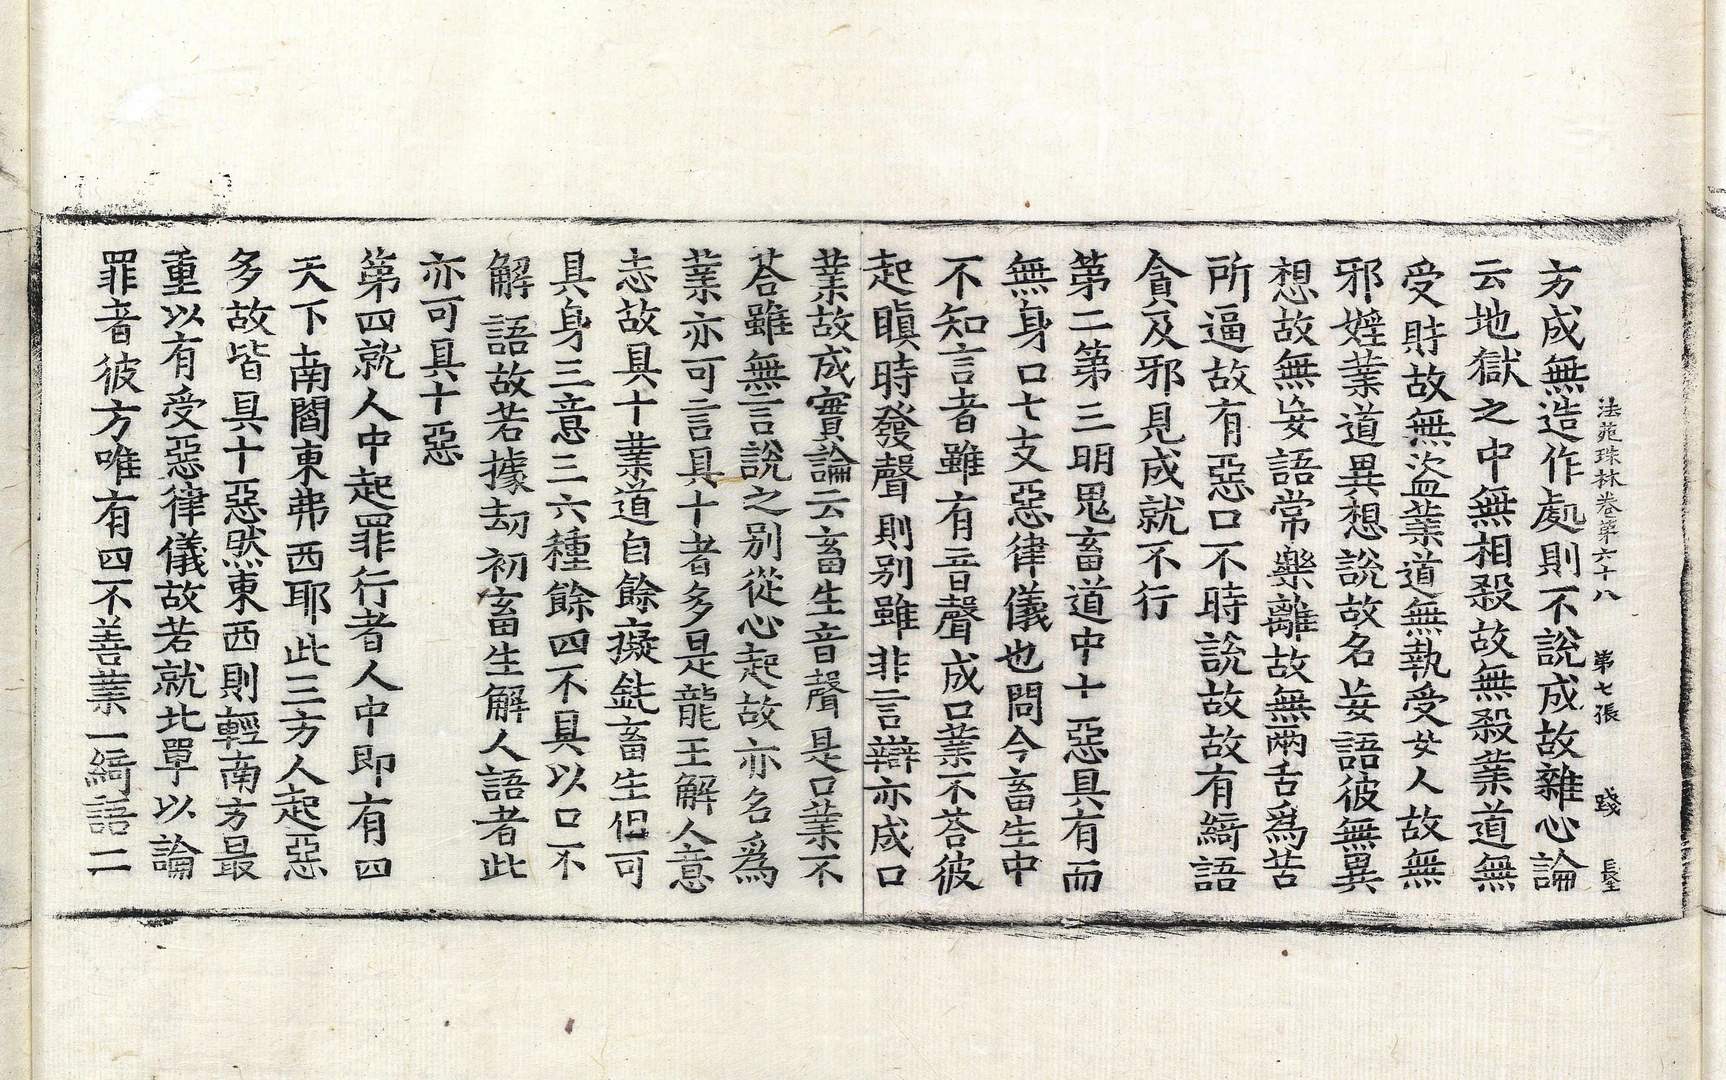 法苑珠林卷第六十八　第七張　踐
方成無造作處則不說成故雜心論
云地獄之中無相殺故無殺業道無
受財故無盜業道無執受女人故無
邪婬業道異想說故名妄語彼無異
想故無妄語常樂離故無兩舌爲苦
所逼故有惡口不時說故故有綺語
貪及邪見成就不行
第二第三明鬼畜道中十惡具有而
無身口七支惡律儀也問今畜生中
不知言者雖有音聲成口業不荅彼
起瞋時發聲則别雖非言辯亦成口
業故成實論云畜生音聲是口業不
荅雖無言說之别從心起故亦名爲
業亦可言具十者多是龍王解人意
志故具十業道自餘癡毓畜生但可
具身三意三六種餘四不具以口不
解語故若據刧初畜生解人語者此
亦可具十惡
第四就人中起罪行者人中即有四
天下南閻東弗西耶此三方人起惡
多故皆具十惡然東西則輕南方最
重以有受惡律儀故若就北單以論
罪者彼方唯有四不善業一綺語二